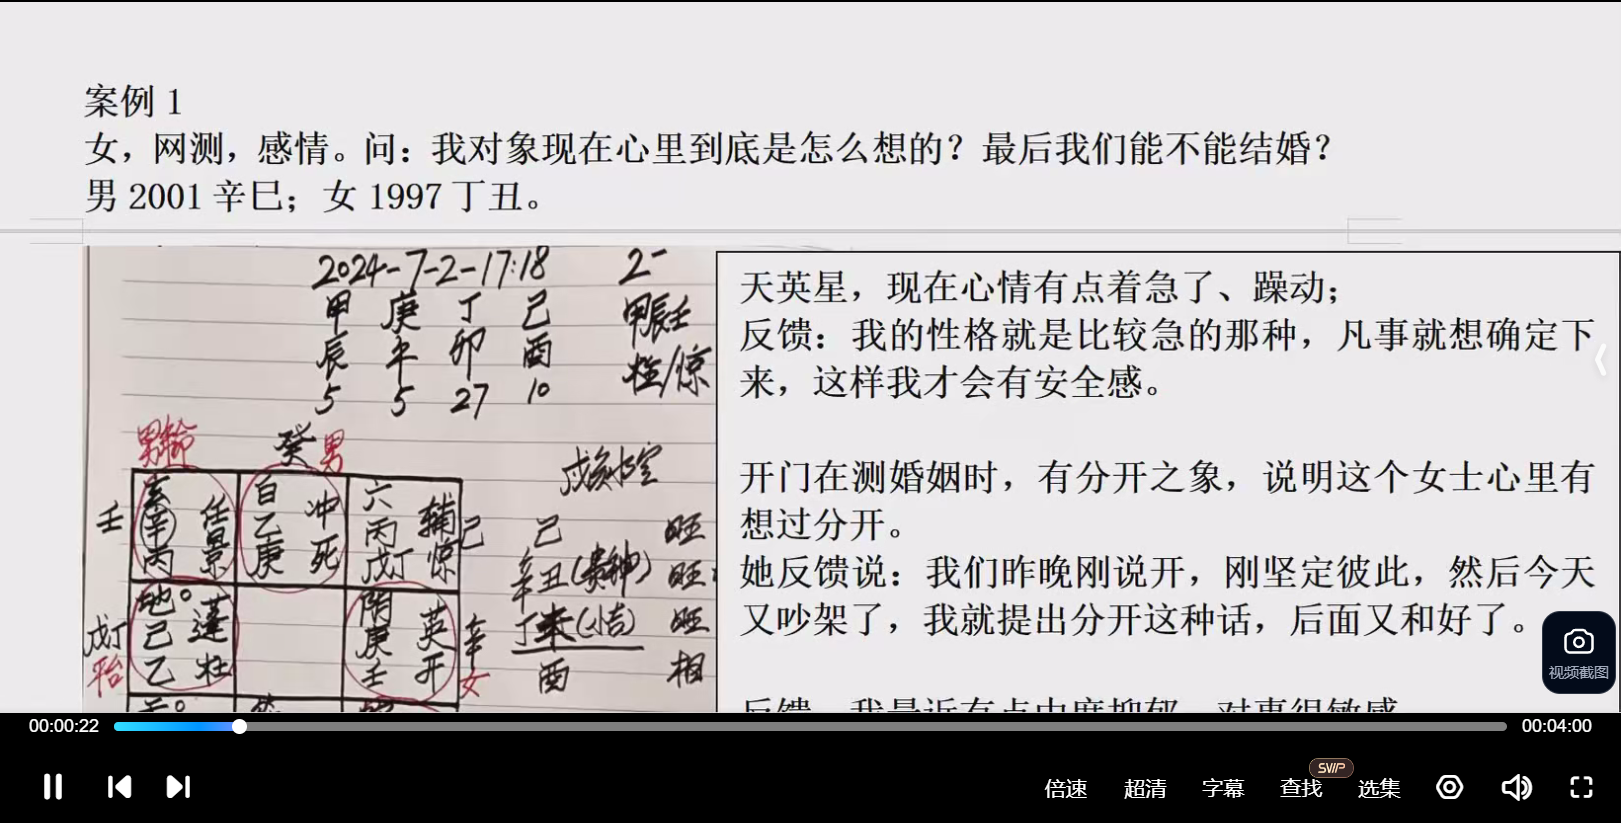 案例 1
女，网测，感情。问：我对象现在心里到底是怎么想的？最后我们能不能结婚？
男 2001 辛巳；女 1997 丁丑。
2024-7-2-17:18
甲 庚 丁 己
辰 午 卯 酉
5 5 27 10
甲辰壬
柱/惊
男
癸 男
壬
玄 任
辛 景
丙
白 冲
乙 死
庚
六 辅
丙 惊
戊丁
己
地 蓬
己 杜
乙
戊丁
阴 英
庚 开
壬
辛
女
己 旺
辛丑 旺
丁未(情) 旺
酉 相
天英星，现在心情有点着急了、躁动；
反馈：我的性格就是比较急的那种，凡事就想确定下
来，这样我才会有安全感。
开门在测婚姻时，有分开之象，说明这个女士心里有
想过分开。
她反馈说：我们昨晚刚说开，刚坚定彼此，然后今天
又吵架了，我就提出分开这种话，后面又和好了。
视频截图
00:00:22
00:04:00
倍速 超清 字幕 查找 SVIP 选集